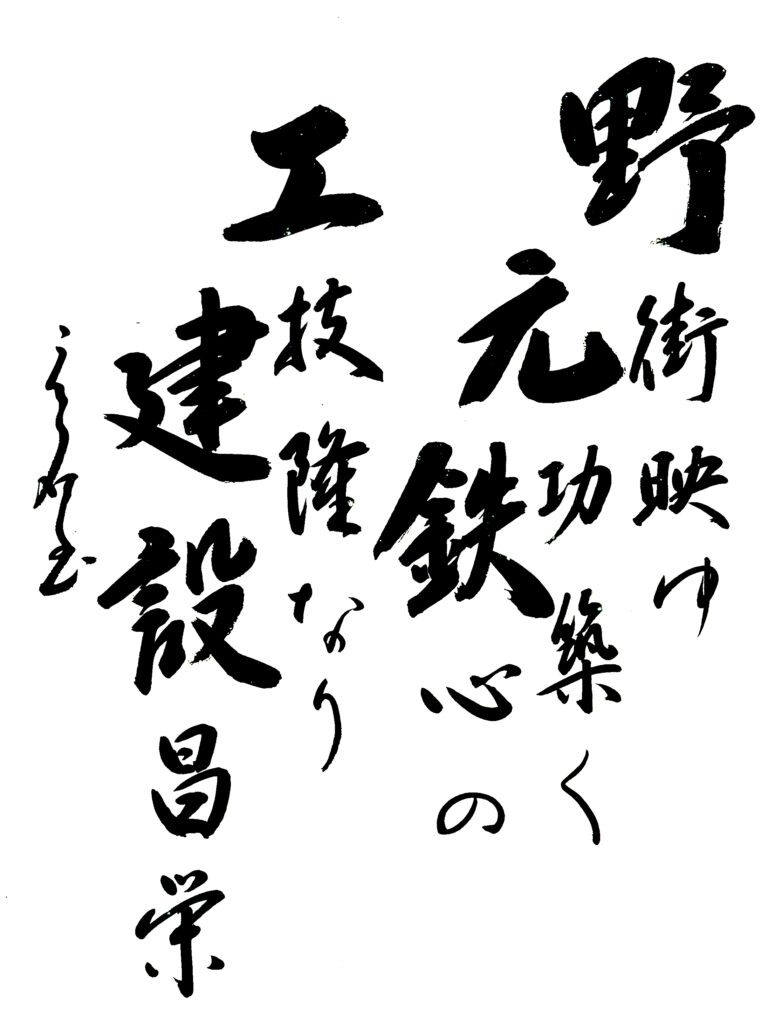 野街映ゆ
元功築く
鉄心の
工技隆なり
建設昌栄